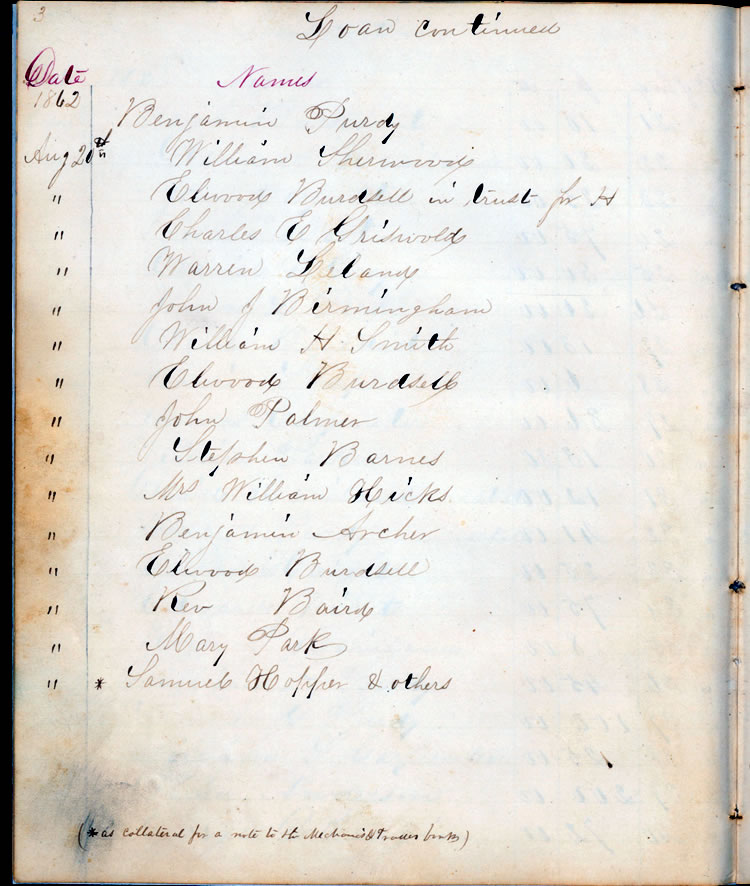 3
Loan continued
Date Names
1862
Benjamin Purdy
Aug 20th William Sherwood
" Elwood Burdsell in trust for H
" Charles E Griswold
" Warren Leland
" John J Birmingham
" William H Smith
" Elwood Burdsell
" John Palmer
" Stephen Barnes
" Mrs William Hicks
" Benjamin Archer
" Elwood Burdsell
" Rev Baird
" Mary Park
" * Samuel Hopper & others
(* as collateral for a note to the Mechanics & Traders bank)